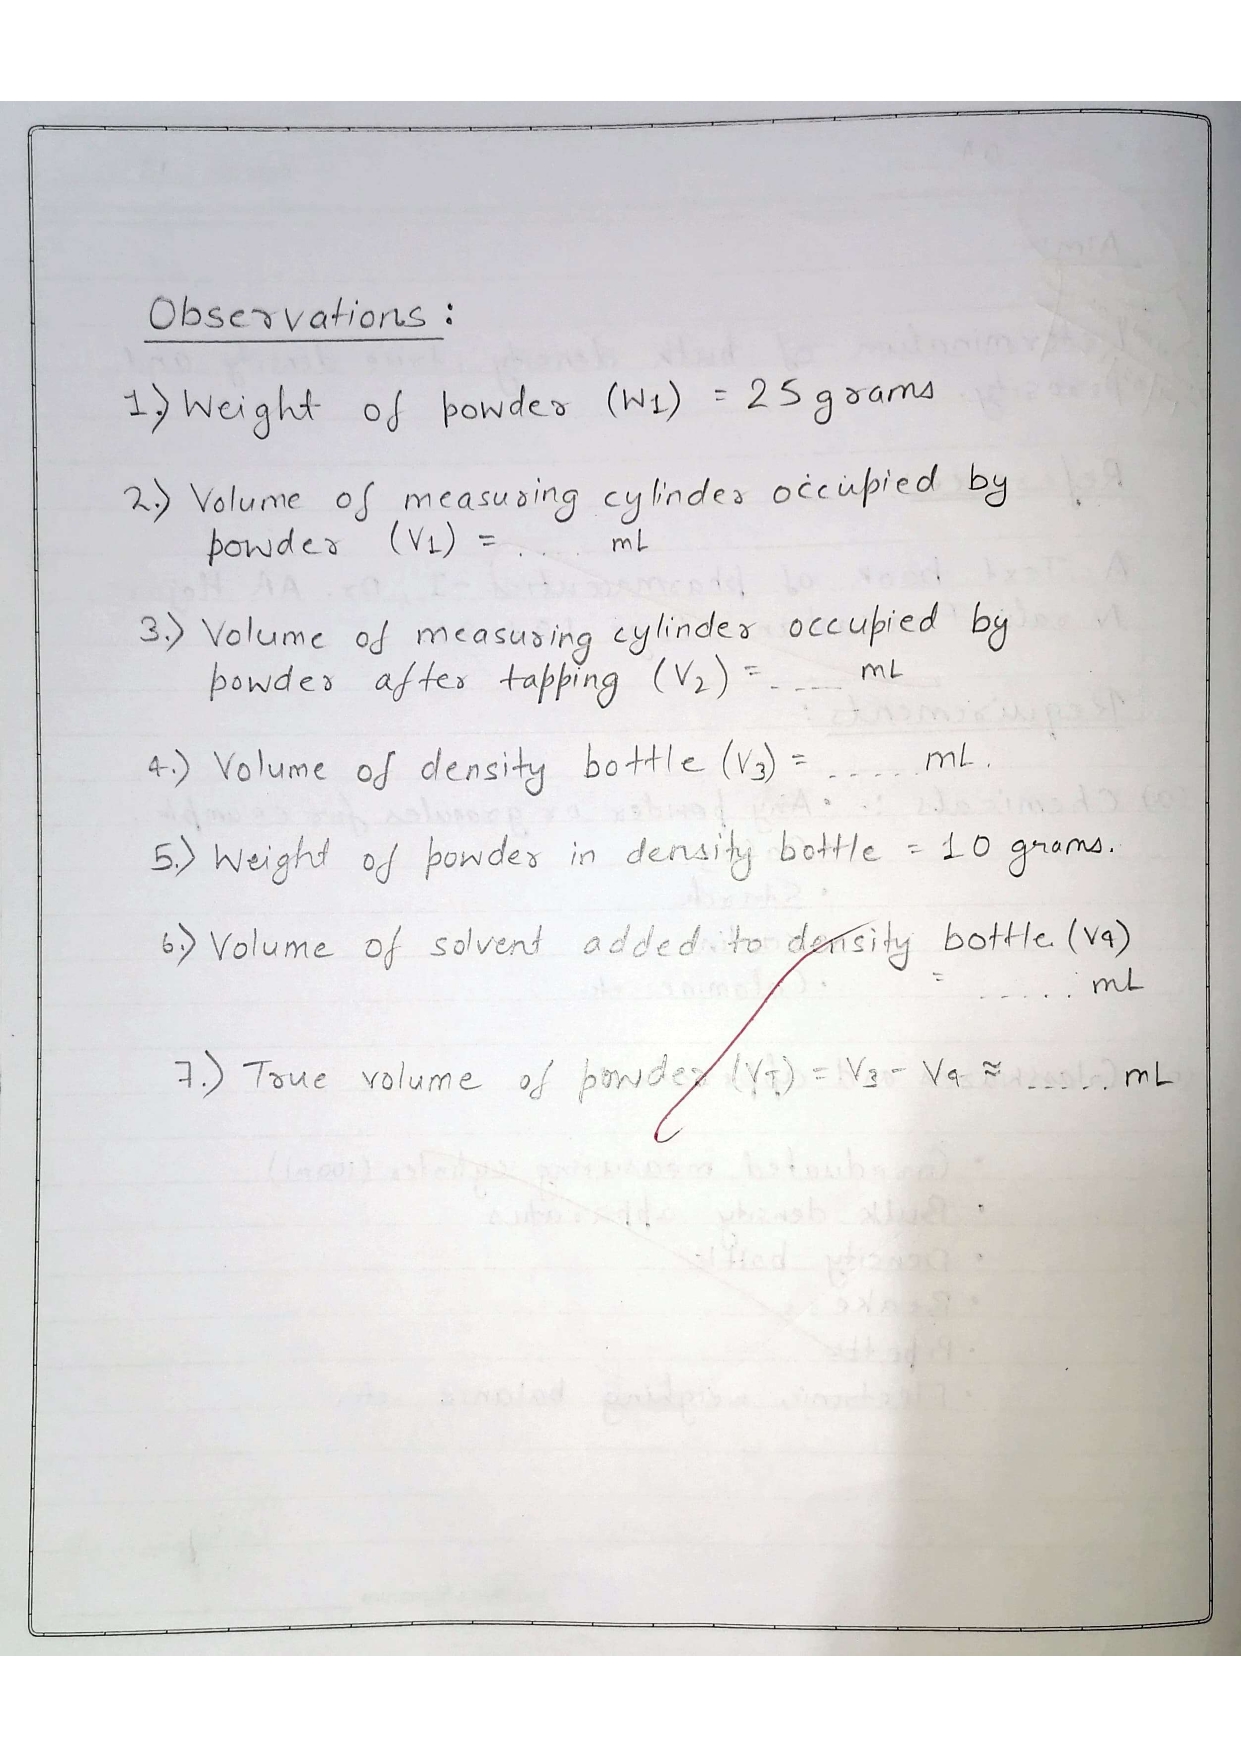 Observations :
1.) Weight of powder (W1) = 25 grams
2.) Volume of measuring cylinder occupied by
powder (V1) = ..... mL
3.) Volume of measuring cylinder occupied by
powder after tapping (V2) = ..... mL
4.) Volume of density bottle (V3) = ..... mL.
5.) Weight of powder in density bottle = 10 grams.
6.) Volume of solvent added to density bottle (V4)
= ..... mL
7.) True volume of powder (VT) = V3 - V4 ≈ ..... mL